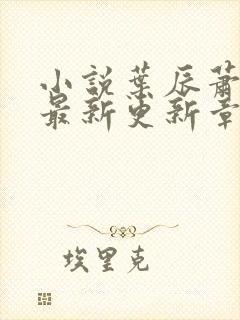 小說葉辰蕭
最新更新章
埃里克